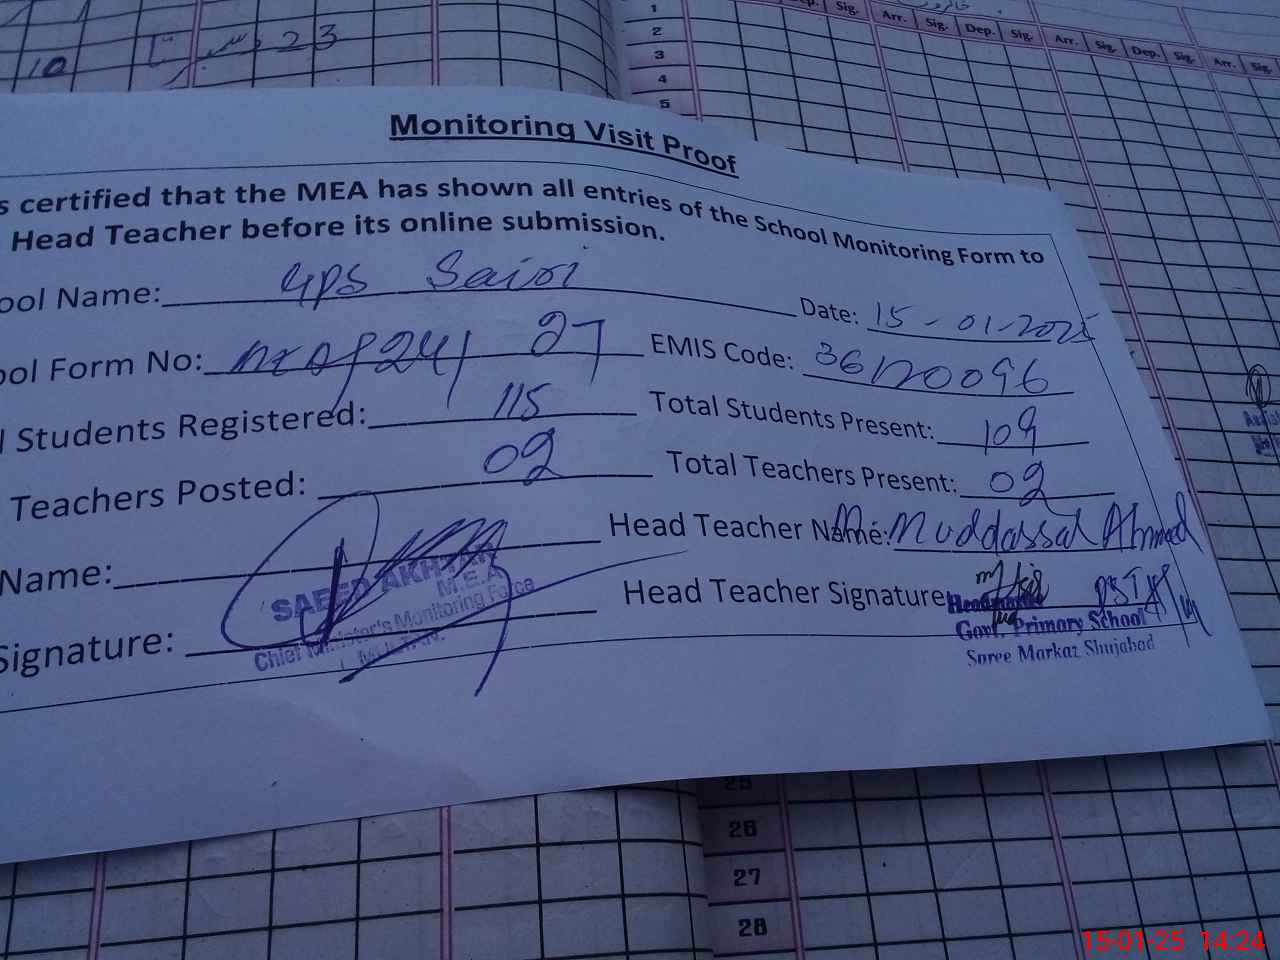 1
2
3
4
5
Sig.
Arr. Sig. Dep. Sig. Arr. Sig. Dep. Sig. Arr. Sig.
10
23
Monitoring Visit Proof
certified that the MEA has shown all entries of the School Monitoring Form to
Head Teacher before its online submission.
ool Name: GPS
Date: 15-01-2025
ool Form No: 27
EMIS Code: 36120096
Students Registered: 115
Total Students Present: 109
Teachers Posted: 02
Total Teachers Present: 02
Name:
Head Teacher Name: M. Muddassal Ahmed
Signature:
Head Teacher Signature
SAEED AKHTAR
M.E.A
Chief Minister's Monitoring Force
MULTAN.
Govt. Primary School
Soree Markaz Shujabad
25
26
27
28
15-01-25 14:24